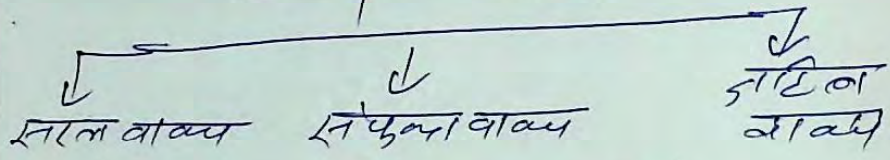 सरल वाक्य संयुक्त वाक्य जटिल
वाक्य